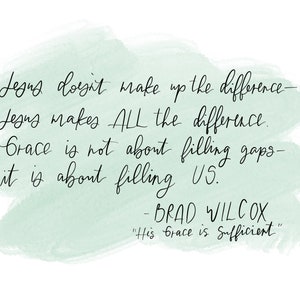 Jesus doesn't make up the difference—
Jesus makes ALL the difference.
Grace is not about filling gaps—
it is about filling US.
- BRAD WILCOX
"His Grace is Sufficient"